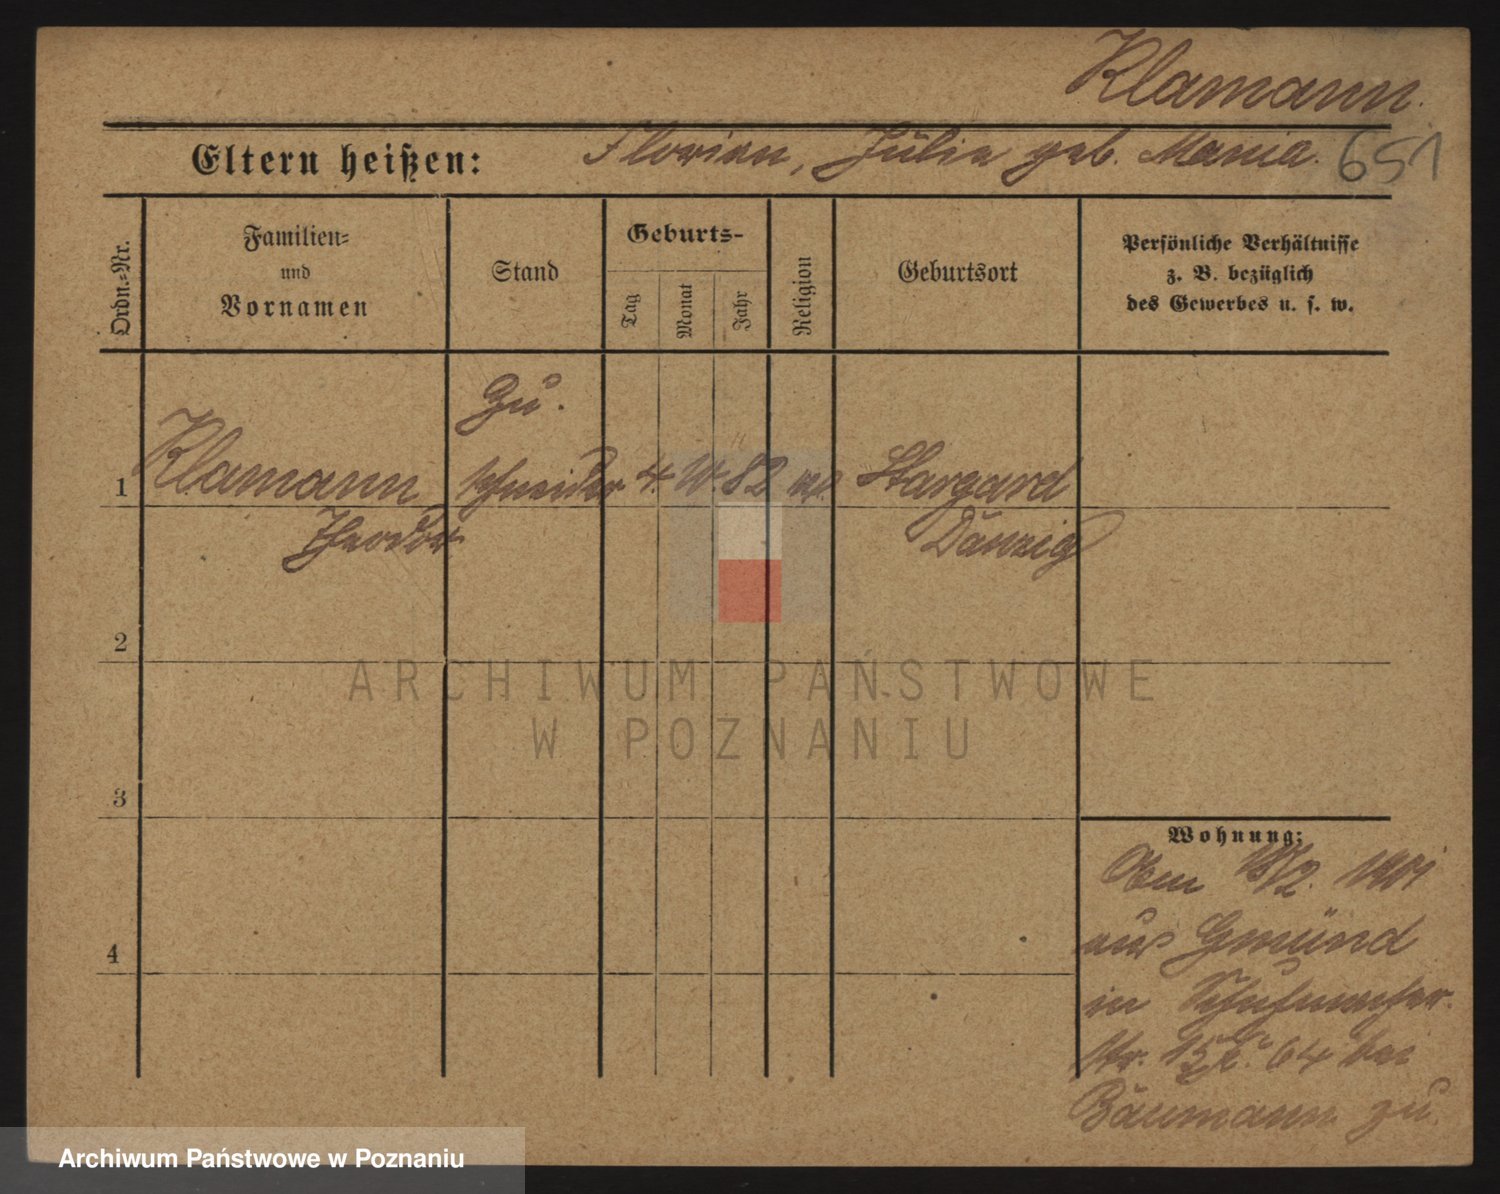 Klamann.
Eltern heißen: Florian, Julie geb. Mania. 651
Ordn.-Nr.
Familien-
und
Vornamen
Stand
Geburts-
Tag
Monat
Jahr
Religion
Geburtsort
Persönliche Verhältnisse
z. B. bezüglich
des Gewerbes u. s. w.
Zu.
1 Klamann schneider 4. 82 Stargard
Theodor Danzig
2
3
4
Wohnung:
1901
aus Gmünd
in Schuhmacher
str. 15 64 bei
Baumann zu.
ARCHIWUM PAŃSTWOWE
W POZNANIU
Archiwum Państwowe w Poznaniu